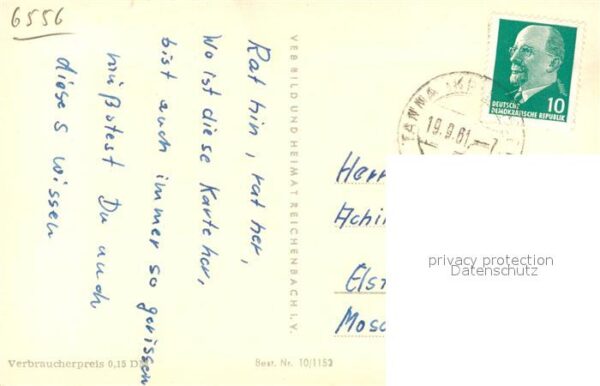 6556
Rat hin, rat her,
Wo ist diese Karte her,
bist auch immer so gerissen
müßtest Du auch
dieses wissen
VEB BILD UND HEIMAT REICHENBACH I. V.
Verbraucherpreis 0,15 D
Best. Nr. 10/1152
TANNA
19.9.61.-7
10
DEUTSCHE
DEMOKRATISCHE REPUBLIK
Herr
Achi
Els
Mos
privacy protection
Datenschutz